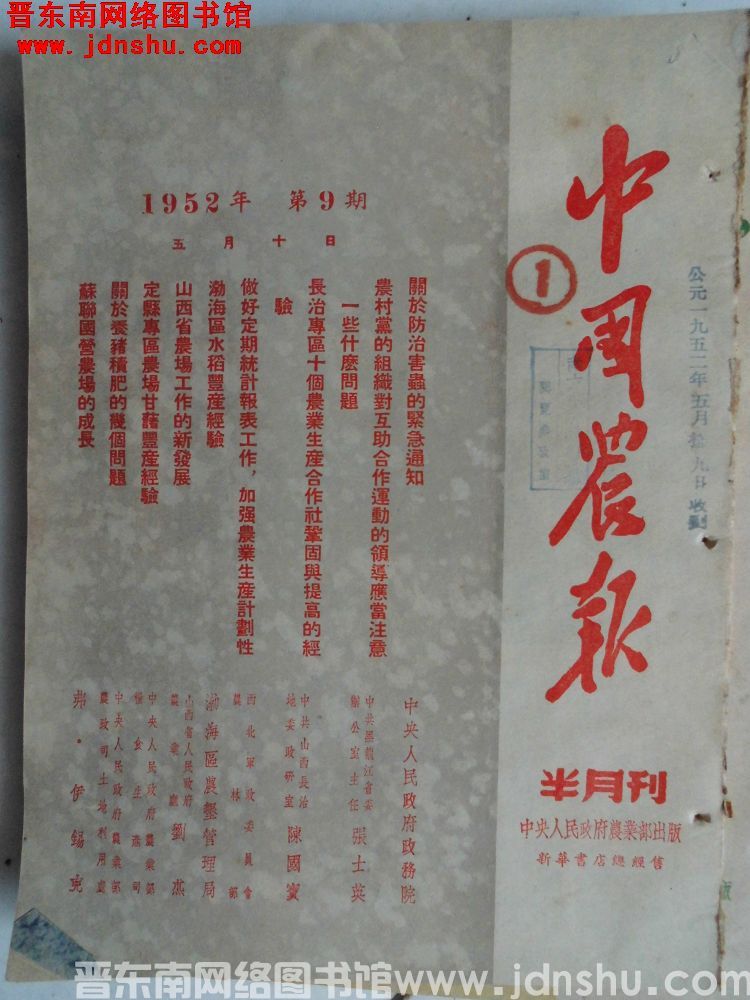 晋东南网络图书馆
www.jdnshu.com
中国農报
半月刊
中央人民政府農業部出版
新華書店總經售
公元一九五二年五月拾九日收到
1
1952年 第9期
五月十日
關於防治害蟲的緊急通知
中央人民政府政務院
農村黨的組織對互助合作運動的領導應當注意
一些什麽問題
中共黑龍江省委
辦公室主任 張士英
長治專區十個農業生産合作社鞏固與提高的經
驗
中共山西長治
地委政研室 陳國寶
做好定期統計報表工作，加强農業生産計劃性
西北軍政委員會
農林部
渤海區水稻豐産經驗
渤海區農墾管理局
山西省農場工作的新發展
山西省人民政府
農業廳 劉杰
定縣專區農場甘藷豐産經驗
中央人民政府農業部
糧食生産司
關於養豬積肥的幾個問題
中央人民政府農業部
農政司土地利用處
蘇聯國營農場的成長
弗·伊錫克
晋东南网络图书馆www.jdnshu.com